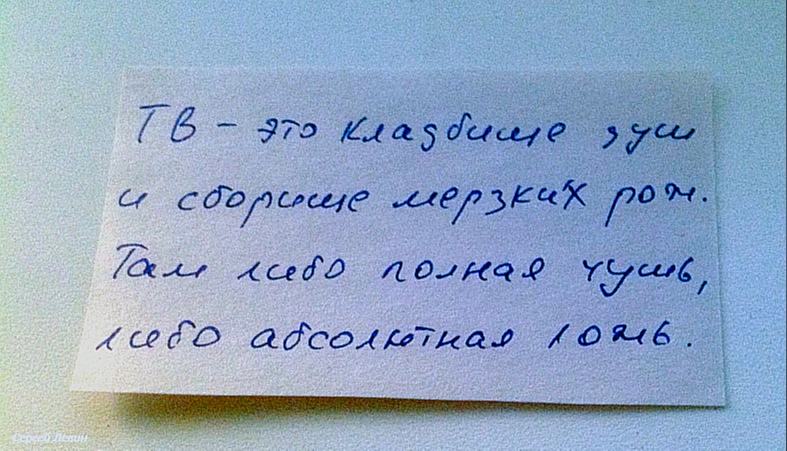 ТВ - это кладбище душ
и сборище мерзких рож.
Там либо полная чушь,
либо абсолютная ложь.
Сергей Левин